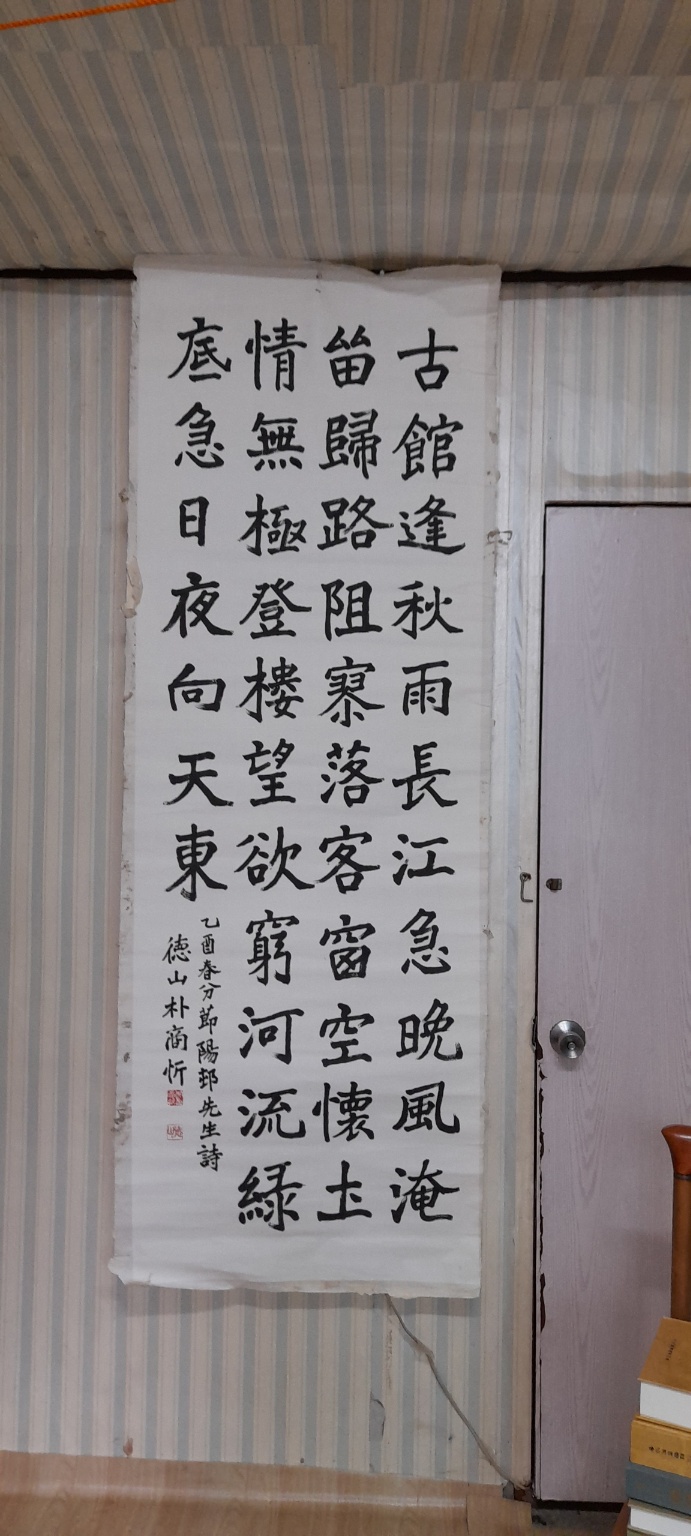 古館逢秋雨長江急晚風淹
留歸路阻寥落客窗空懷土
情無極登樓望欲窮河流綠
底急日夜向天東
乙酉春分節陽邨先生詩
德山朴商忻